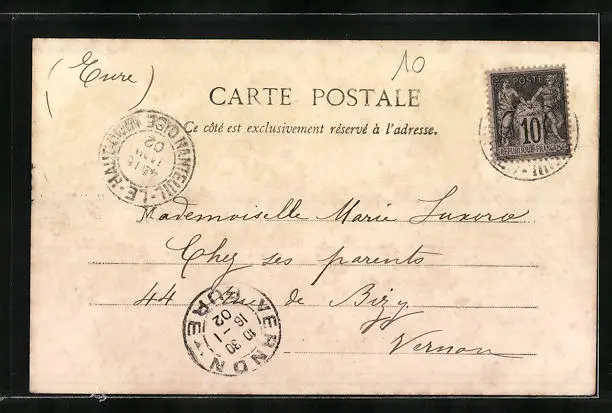 (Eure)
10
CARTE POSTALE
Ce côté est exclusivement réservé à l'adresse.
POSTE
10
REPUBLIQUE FRANÇAISE
NANTEUIL-LE-HAUDOUIN OISE
02
Mademoiselle Marie
Chez ses parents
44 Rue de Bizy
Vernon
VERNON EURE
10 30
16-1
02